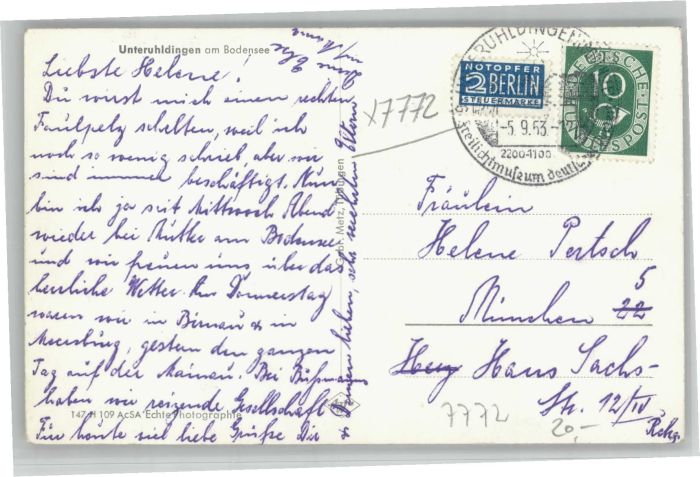 Unteruhldingen am Bodensee
Liebste Helene!
Du wirst mich einen rechten
Faulpelz schelten, weil ich
noch so wenig schrieb, aber wir
sind immer beschäftigt. Nun
bin ich ja seit Mittwoch Abend
wieder bei Mutke am Bodensee
und wir freuen uns über das
herrliche Wetter. Am Donnerstag
waren wir in Birnau & in
Meersburg, gestern den ganzen
Tag auf der Mainau. Bei
haben wir reizende Gesellschaft
Für heute viel liebe Grüße Dir
& Deinen lieben, sehr verehrten Eltern
Gebr. Metz, Tübingen
147 H 109 AcSA Echte Photographie
x7772
NOTOPFER
2 BERLIN
STEUERMARKE
DEUTSCHE BUNDESPOST
10
UHLDINGEN
-5.9.53.-
2200-1100
Freilichtmuseum deutsch
Fräulein
Helene Pertsch
München 5
22
Hans Sachs-
Str. 12/IV
Rckg.
7772
20,-